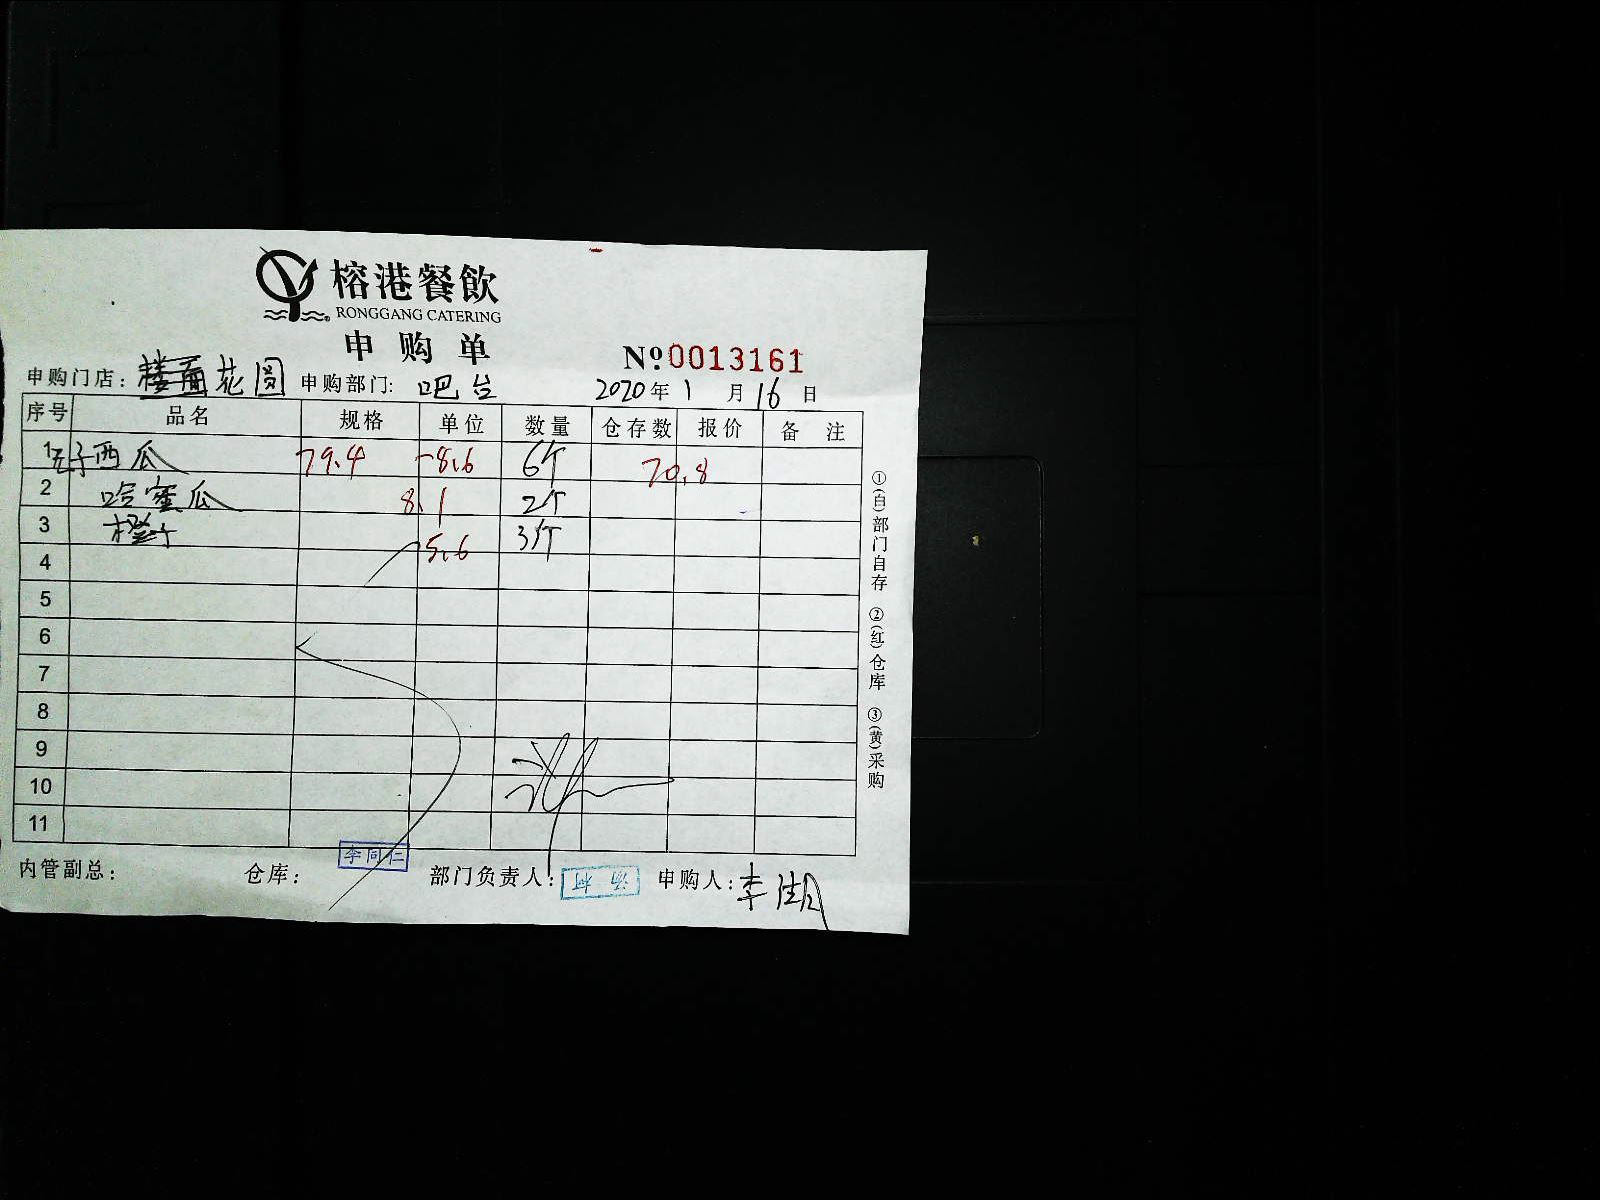 榕港餐飲
RONGGANG CATERING
申购单
№0013161
申购门店: 花园 申购部门: 吧台 2020年1月16日
序号 品名 规格 单位 数量 仓存数 报价 备注
1 无子西瓜 79.4 -8.6 6个 70.8
2 哈蜜瓜 8.1 2个
3 橙子 5.6 3个
4
5
6
7
8
9
10
11
内管副总: 仓库: 李同仁 部门负责人: 申购人: 李
①(白)部门自存 ②(红)仓库 ③(黄)采购